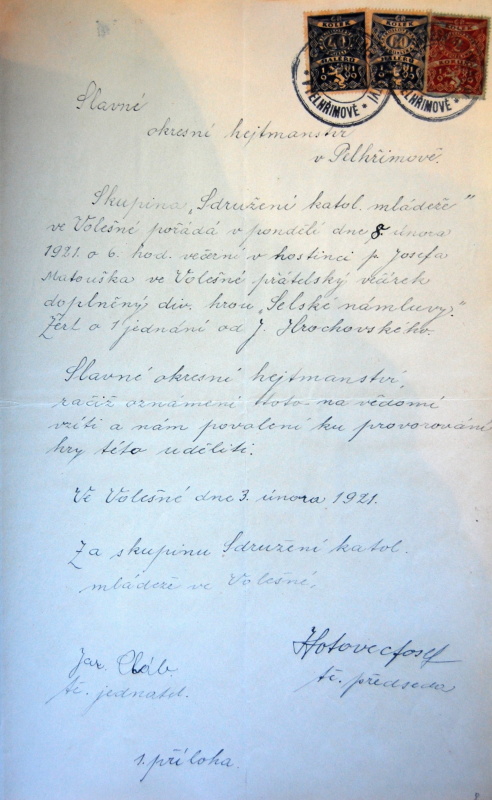 ČR
KOLEK
40
HALÉŘŮ
ČR
KOLEK
60
HALÉŘŮ
ČR
KOLEK
2
KORUNY
PELHŘIMOVĚ
PELHŘIMOVĚ
Slavné
okresní hejtmanství
v Pelhřimově.
Skupina „Sdružení katol. mládeže"
ve Volešné pořádá v pondělí dne 8. února
1921 o 6. hod. večerní v hostinci p. Josefa
Matouška ve Volešné přátelský večírek
doplněný div. hrou „Selské námluvy."
Žert o 1 jednání od J. Hrochovského.
Slavné okresní hejtmanství,
račiž oznámení toto na vědomí
vzíti a nám povolení ku provozování
hry této uděliti.
Ve Volešné dne 3. února 1921.
Za skupinu Sdružení katol.
mládeže ve Volešné.
Hotovec Josef
t.č. předseda
Jar.
t.č. jednatel.
1. příloha.